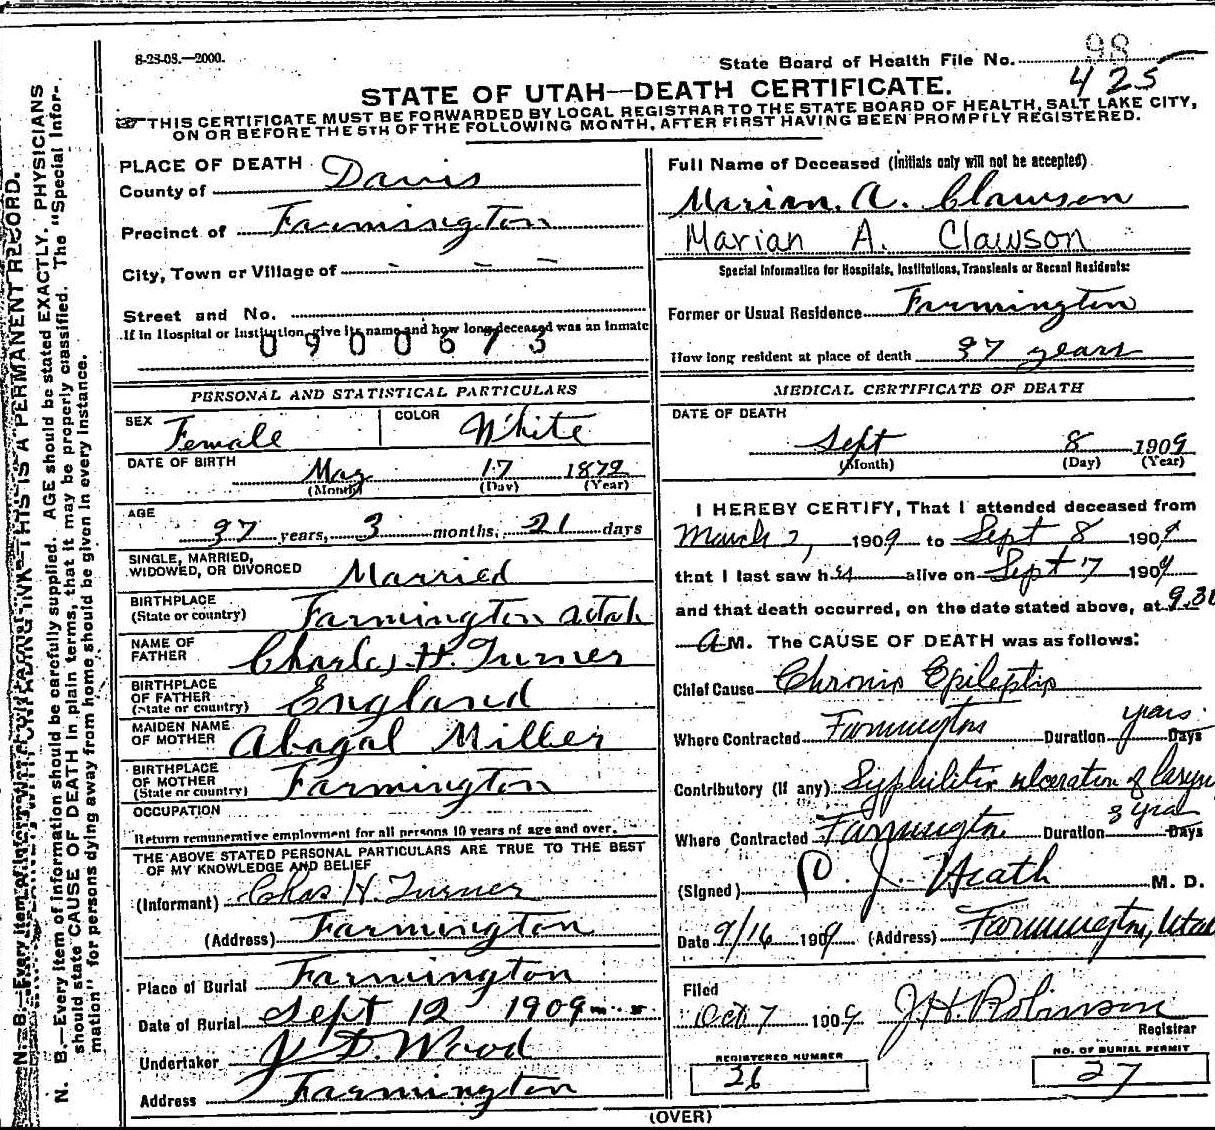 8-23-08.—2000.
State Board of Health File No. 98
425
STATE OF UTAH—DEATH CERTIFICATE.
THIS CERTIFICATE MUST BE FORWARDED BY LOCAL REGISTRAR TO THE STATE BOARD OF HEALTH, SALT LAKE CITY,
ON OR BEFORE THE 5TH OF THE FOLLOWING MONTH, AFTER FIRST HAVING BEEN PROMPTLY REGISTERED.
PLACE OF DEATH
County of Davis
Precinct of Farmington
City, Town or Village of - - -
Street and No.
If in Hospital or Institution, give its name and how long deceased was an inmate
0900673
PERSONAL AND STATISTICAL PARTICULARS
SEX Female COLOR White
DATE OF BIRTH May 17 1872
(Month) (Day) (Year)
AGE 37 years, 3 months, 21 days
SINGLE, MARRIED,
WIDOWED, OR DIVORCED Married
BIRTHPLACE
(State or country) Farmington Utah
NAME OF
FATHER Charles H. Turner
BIRTHPLACE
OF FATHER
(State or country) England
MAIDEN NAME
OF MOTHER Abagal Miller
BIRTHPLACE
OF MOTHER
(State or country) Farmington
OCCUPATION
Return remunerative employment for all persons 10 years of age and over.
THE ABOVE STATED PERSONAL PARTICULARS ARE TRUE TO THE BEST
OF MY KNOWLEDGE AND BELIEF
(Informant) Chas H. Turner
(Address) Farmington
Place of Burial Farmington
Date of Burial Sept 12 1909
Undertaker J D. Wood
Address Farmington
Full Name of Deceased (Initials only will not be accepted)
Marian. A. Clawson
Marian A. Clawson
Special Information for Hospitals, Institutions, Transients or Recent Residents:
Former or Usual Residence Farmington
How long resident at place of death 37 years
MEDICAL CERTIFICATE OF DEATH
DATE OF DEATH
Sept 8 1909
(Month) (Day) (Year)
I HEREBY CERTIFY, That I attended deceased from
March 2, 1909 to Sept 8 1909
that I last saw her alive on Sept 7 1909
and that death occurred, on the date stated above, at 9.30
A M. The CAUSE OF DEATH was as follows:
Chief Cause Chronic Epileptic
Where Contracted Farmington Duration years. Days
Contributory (if any) Syphilitic ulceration of laryn
Where Contracted Farmington Duration 3 years Days
(Signed) J. Heath M. D.
Date 9/16 1909 (Address) Farmington, Utah
Filed
Oct 7 1909 J.H. Robinson
Registrar
REGISTERED NUMBER
26
NO. OF BURIAL PERMIT
27
(OVER)
N. B.—Every item of information should be carefully supplied. AGE should be stated EXACTLY. PHYSICIANS
should state CAUSE OF DEATH in plain terms, that it may be properly classified. The "Special Infor-
mation" for persons dying away from home should be given in every instance.
THIS IS A PERMANENT RECORD.